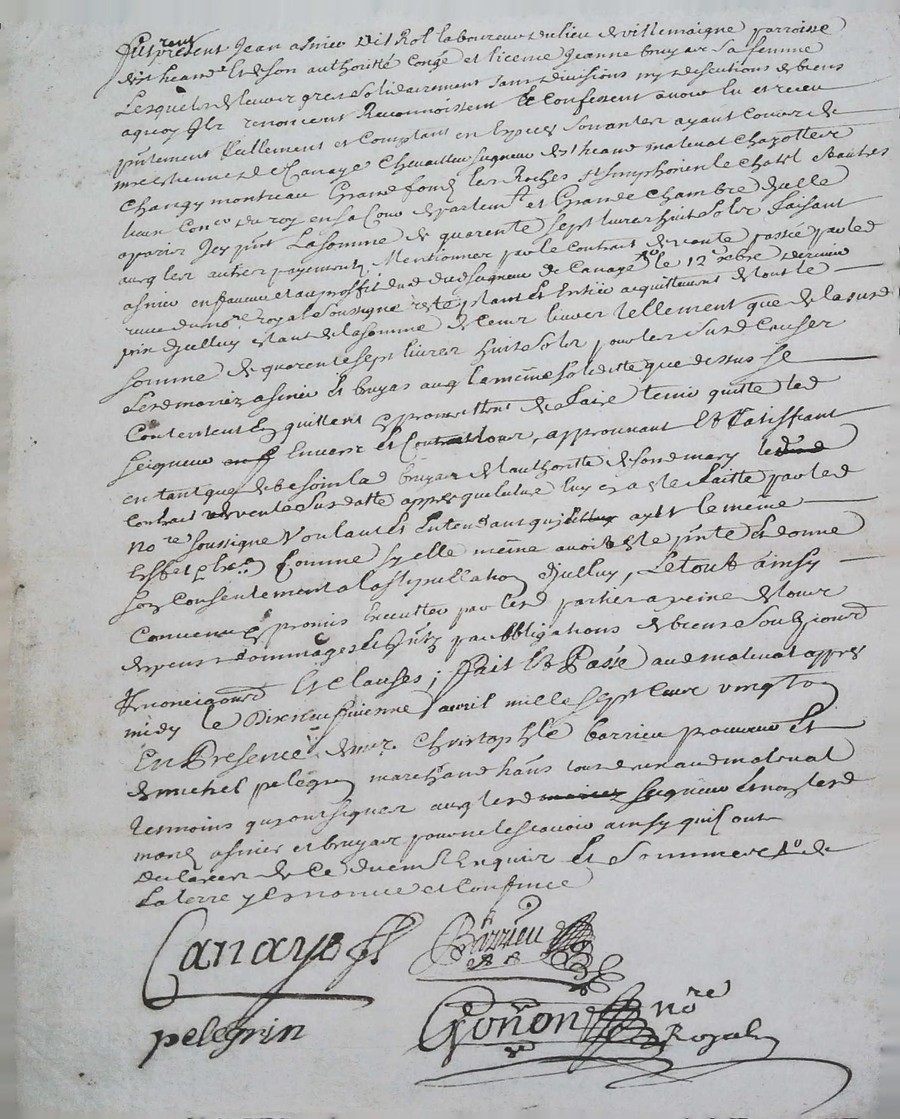 Furent present Jean asnier dit Rol laboureur du lieu de villemaigne parroisse
de st heand et de son authoritté congé et licence Jeanne bruyas sa femme
Lesquels de leur gré solidairement sans divisions ny discutions de biens
aquoy Ilz renoncent Reconnoissent et Confessent avoir eu et receu
pntement Reallement et Comptant en Espèces sonnantes ayant cours de
mre estienne de Canaye Chevallier seigneur de st heand malleval chazottier
Changy montreau Grand fond les Roches st simphorien le chatel et autres
lieux Conr du roy en sa Cour de parlemt et Grande Chambre d'icelle
aparis Icy pnt La somme de quarente sept livres huit solz faisant
avec les autres payements Mentionnés par le Contrait de vente passé par led
asnier en faveur et au proffit dud seigneur de Canaye le 12 xbre dernier
receu du nore royal soussigné reste et entier acquittement de tout le
prix d'icelluy estant de la somme de Cent livres tellement que de la susd
somme de quarente sept livres huit solz pour les susd Causes
Lesd mariez asnier et bruyas avec la même solidité que dessus se
Contentent En quittent et promettent de la faire tenir quitte led
seigneur Envers et Contre tous, approuvant et Ratiffiant
en tant que de besoin lad bruyas de l'authorité de son d mary le
Contrait de vente susdatté appres que lecture luy en a esté faitte par led
nore soussigné Voulant et Entendant qu'il aye le même
Effet et Comme sy elle même avoit esté pnte et donné
son Consentement a la stipullation d'icelluy, Le tout ainsy
Convenu et promis Executter par lesd parties a peine de tous
despens dommages et Intz par obligations de biens soubzjourd
Renonciaond et Clauses; fait et Passé aud malleval appres
midy le Dixneufvieme avril mille sept cent vingt
En Presence de mre Christophle barrieu procureur et
de michel pelegrin marchand habts tous deux aud malleval
tesmoins quy ont signés avec led seigneur et non lesd
mariés asnier et bruyas pour ne le scavoir ainsy qu'il ont
Declarer de ce duement Enquis et sommés de
La terre
Canaye
Barrieu
pelegrin
Gonon nore
Royal